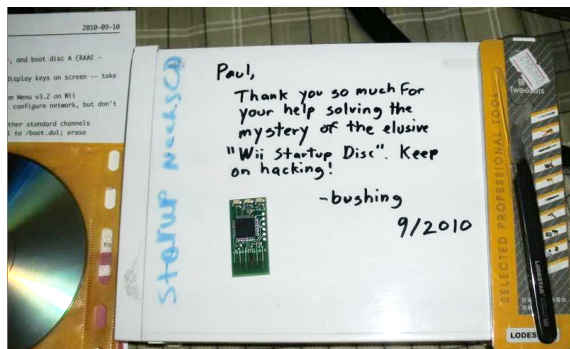 2010-09-10
, and boot disc A (RAAE -
display keys on screen -- take
Menu v3.2 on Wii
configure network, but don't
other standard channels
to /boot.dol; erase
to
Startup NeedsCD
Paul,
Thank you so much for
your help solving the
mystery of the elusive
"Wii Startup Disc". Keep
on hacking!
-bushing
9/2010
Tweezers
SELECTED PROFESSIONAL TOOL
LODESTAR
LODES